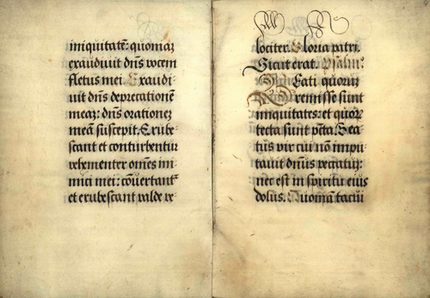 iniquitatē: quoniaȝ
exaudiuit dn̄s vocem
fletus mei. Exaudi-
uit dn̄s deprecationē
meaȝ: dn̄s orationeȝ
meā suscepit. Erube
scant et conturbentur
vehementer om̄es ini
mici mei: cōuertantᷣ
et erubescant valde ve
lociter. Gloria patri.
Sicut erat. Psalm᷒.
Beati quoruȝ
remisse sunt
iniquitates: et quoꝝ
tecta sunt pctā. Bea-
tus vir cui nō impu
tauit dn̄us peccatuȝ:
nec est in spiritu eius
dolus. Quoniā tacui